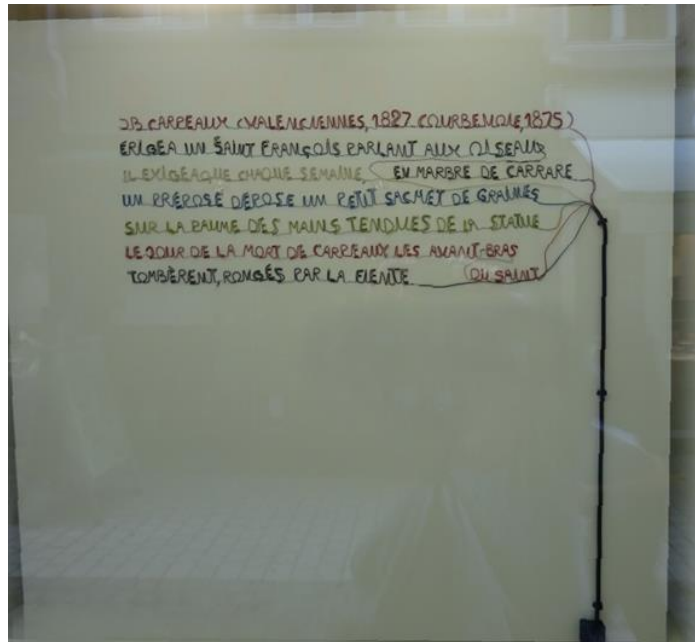 JB CARPEAUX (VALENCIENNES, 1827 COURBEVOIE, 1875)
ÉRIGEA UN SAINT FRANÇOIS PARLANT AUX OISEAUX
IL EXIGEA QUE CHAQUE SEMAINE, EN MARBRE DE CARRARE
UN PRÉPOSÉ DÉPOSE UN PETIT SACHET DE GRAINES
SUR LA PAUME DES MAINS TENDUES DE LA STATUE
LE JOUR DE LA MORT DE CARPEAUX LES AVANT-BRAS
TOMBÈRENT, RONGÉS PAR LA FIENTE DU SAINT